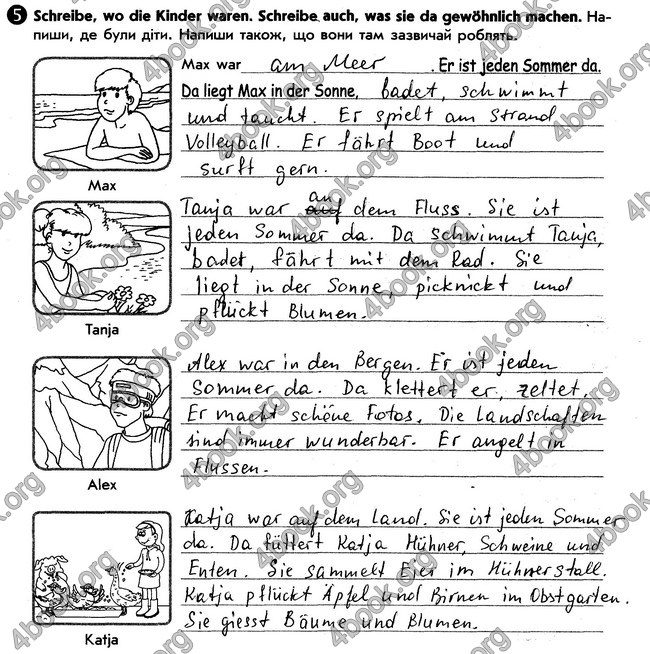 5 Schreibe, wo die Kinder waren. Schreibe auch, was sie da gewöhnlich machen. На-
пиши, де були діти. Напиши також, що вони там зазвичай роблять.
Max war am Meer. Er ist jeden Sommer da.
Da liegt Max in der Sonne, badet, schwimmt
und taucht. Er spielt am Strand
Volleyball. Er fährt Boot und
surft gern.
Max
an
Tanja war auf dem Fluss. Sie ist
jeden Sommer da. Da schwimmt Tanja,
badet, fährt mit dem Rad. Sie
liegt in der Sonne, picknickt und
pflückt Blumen.
Tanja
Alex war in den Bergen. Er ist jeden
Sommer da. Da klettert er, zeltet.
Er macht schöne Fotos. Die Landschaften
sind immer wunderbar. Er angelt in
Flussen.
Alex
Katja war auf dem Land. Sie ist jeden Sommer
da. Da füttert Katja Hühner, Schweine und
Enten. Sie sammelt Eier im Hühnerstall.
Katja pflückt Äpfel und Birnen im Obstgarten.
Sie giesst Bäume und Blumen.
Katja
4book.org